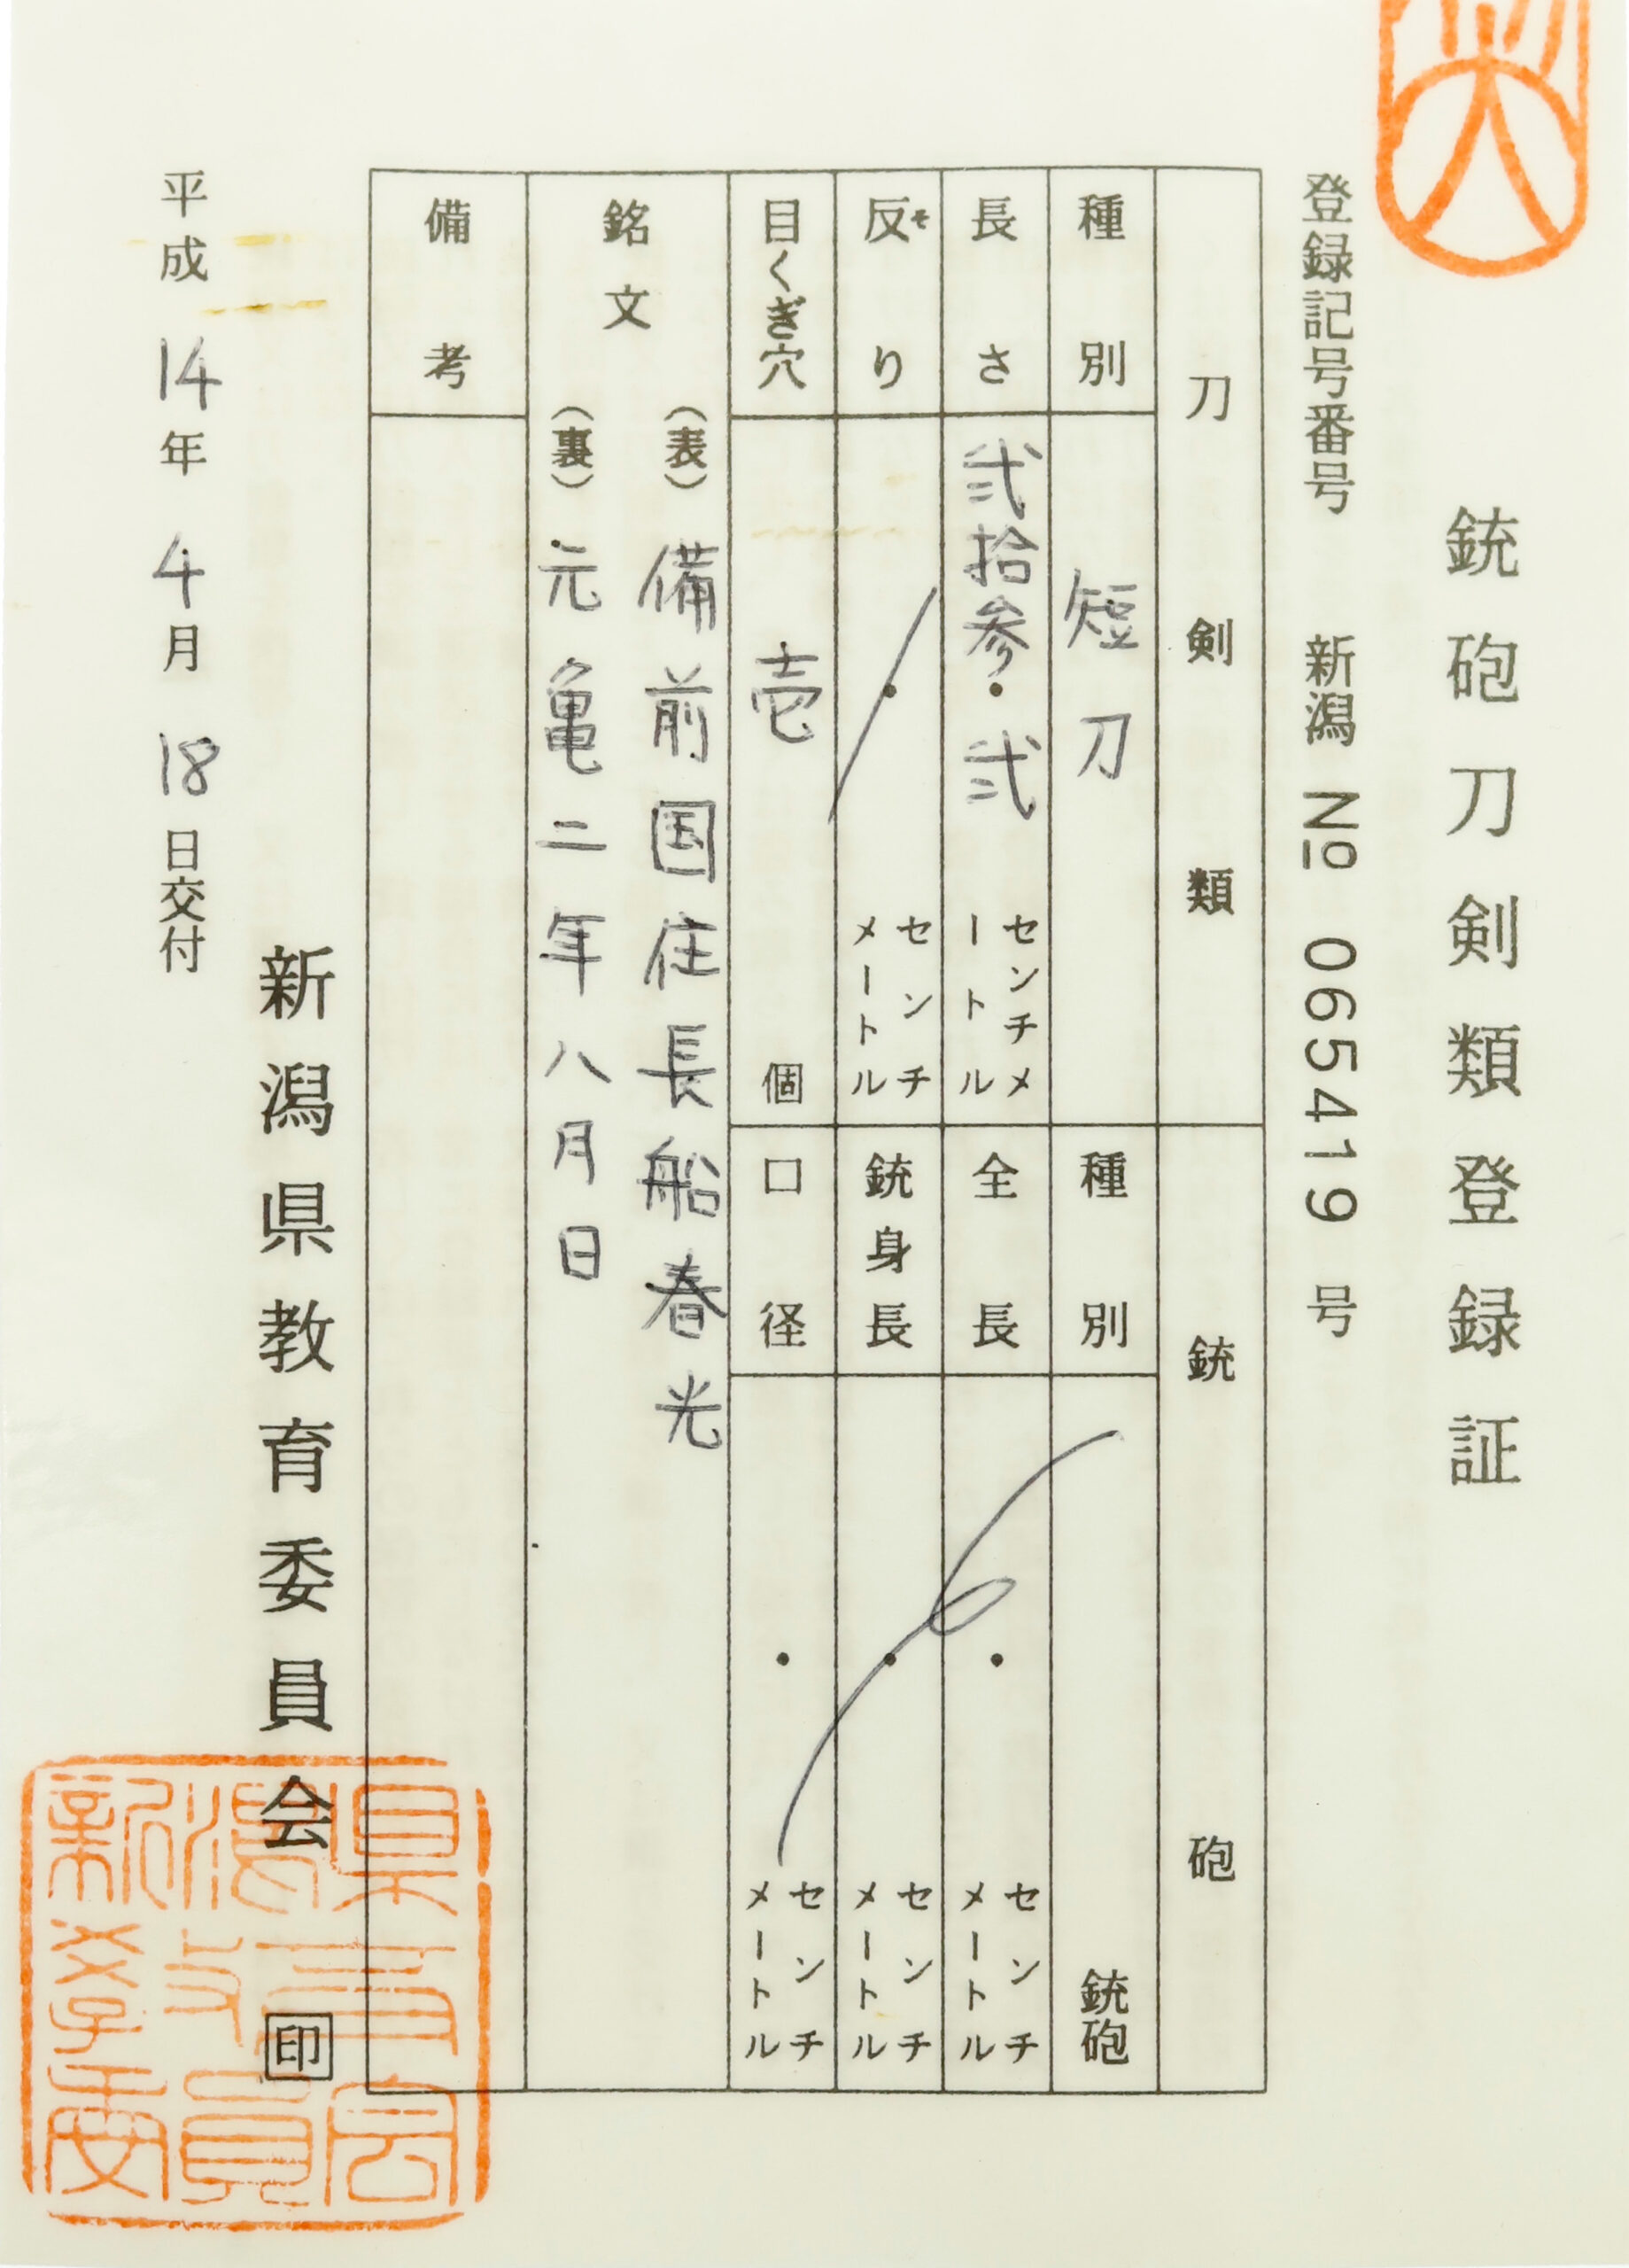 銃砲刀剣類登録証
登録記号番号 新潟 № 065419 号
刀剣類
種別 短刀
長さ 弐拾参・弐 センチメートル
反り そ ・ センチメートル
目くぎ穴 壱 個
銃砲
種別 銃砲
全長 ・ センチメートル
銃身長 ・ センチメートル
口径 ・ センチメートル
銘文 (表) 備前国住長船春光
(裏) 元亀二年八月日
備考
新潟県教育委員会 印
平成 14 年 4 月 18 日交付
新潟県
教育
委員会